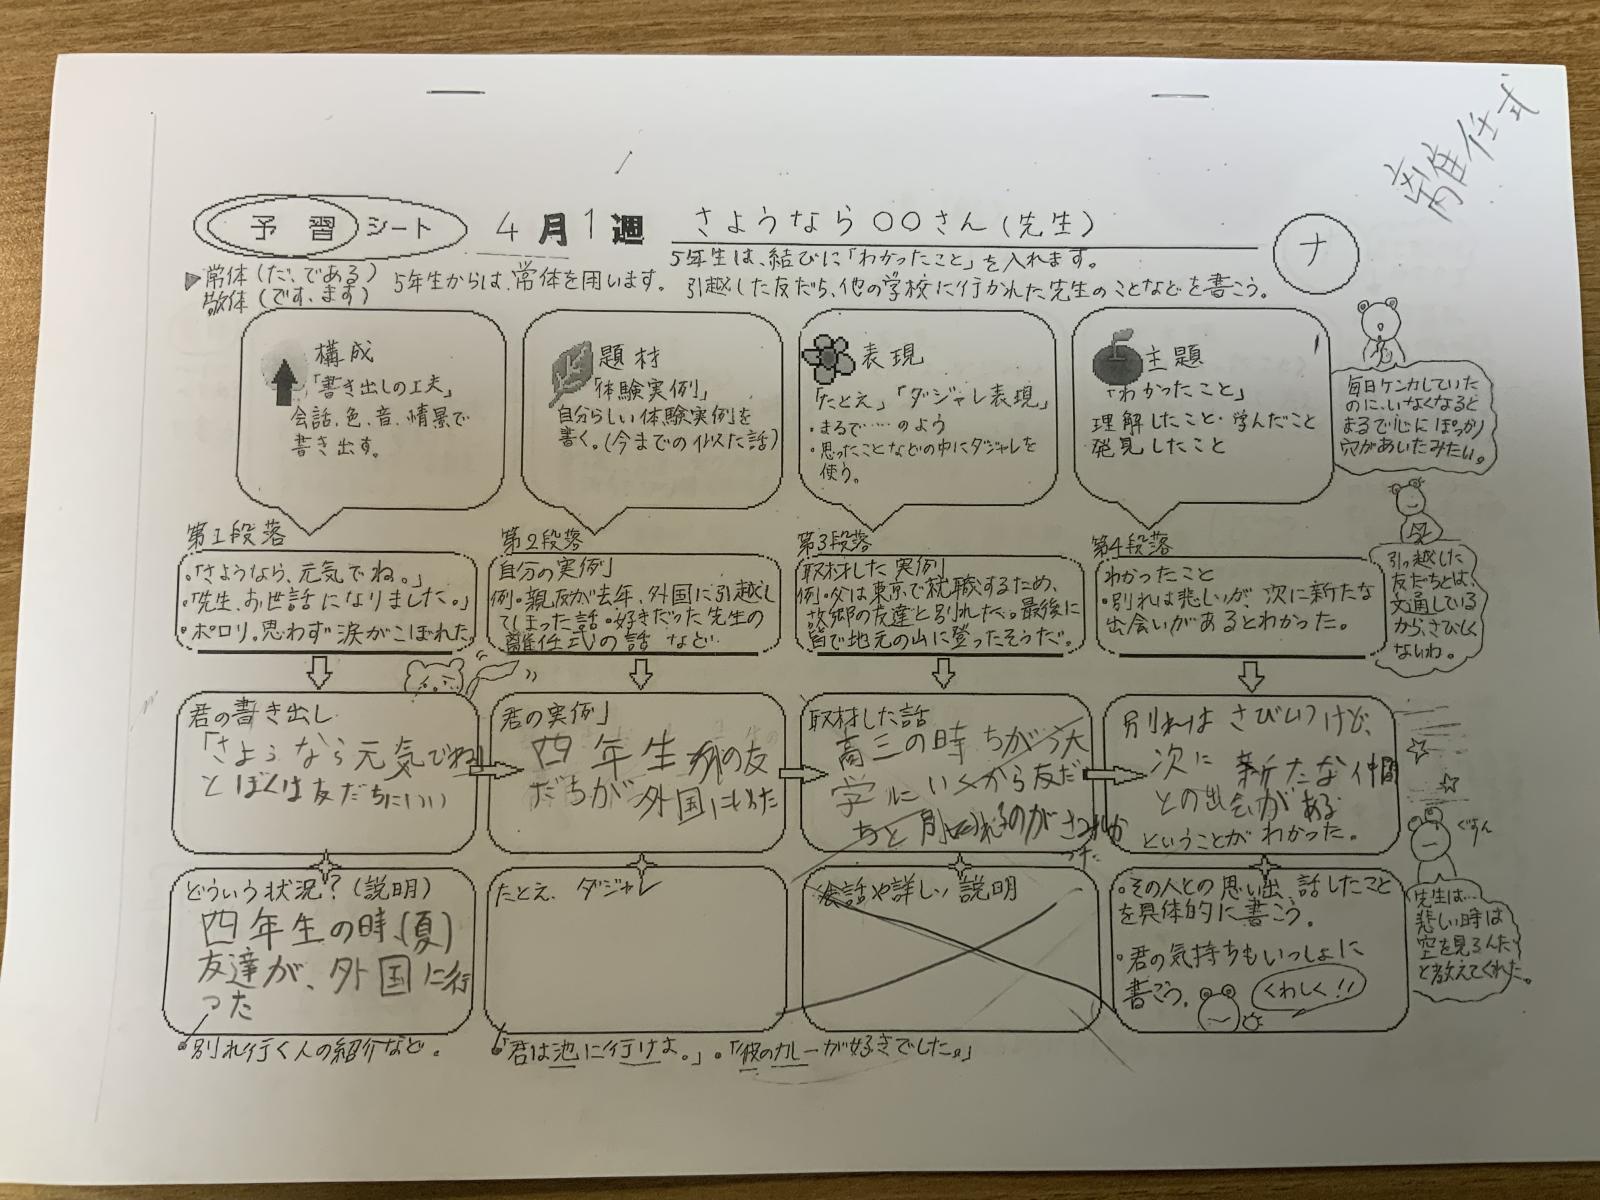 離任式
予習シート 4月1週 さようなら○○さん(先生) ナ
5年生は、結びに「わかったこと」を入れます。
▶常体(だ、である) 5年生からは、常体を用います。 引越した友だち、他の学校に行かれた先生のことなどを書こう。
敬体(です、ます)
構成
「書き出しの工夫」
会話、色、音、情景で
書き出す。
題材
「体験実例」
自分らしい体験実例を
書く。(今までの似た話)
表現
「たとえ」「ダジャレ表現」
・まるで……のよう
・思ったことなどの中にダジャレを
使う。
主題
「わかったこと」
理解したこと・学んだこと
発見したこと
毎日ケンカしていた
のに、いなくなると
まるで心にぽっかり
穴があいたみたい。
第1段落
・「さようなら、元気でね。」
・「先生、お世話になりました。」
・ポロリ。思わず涙がこぼれた
第2段落
自分の実例
例・親友が去年、外国に引越し
てしまった話・好きだった先生の
離任式の話 など
第3段落
取材した実例
例・父は東京で就職するため、
故郷の友達と別れた。最後に
皆で地元の山に登ったそうだ。
第4段落
わかったこと
・別れは悲しいが、次に新たな
出会いがあるとわかった。
引っ越した
友だちとは、
文通している
から、さびしく
ないわ。
君の書き出し
「さようなら元気でね」
とぼくは友だちにいい
君の実例
四年生 の友
だちが外国にいった
取材した話
高三の時ちがう大
学にいくから友だ
ちと別れるのが
別れはさびしいけど、
次に新たな仲間
との出会いがある
ということがわかった。
ぐすん
どういう状況?(説明)
四年生の時、(夏)
友達が、外国に行
った
・別れ行く人の紹介など。
たとえ、ダジャレ
・「君は池に行けよ。」・「彼のカレーが好きでした。」
会話や詳しい説明
・その人との思い出、話したこと
を具体的に書こう。
・君の気持ちもいっしょに
書こう。
くわしく!!
先生は…
悲しい時は
空を見るんだ
と教えてくれた。